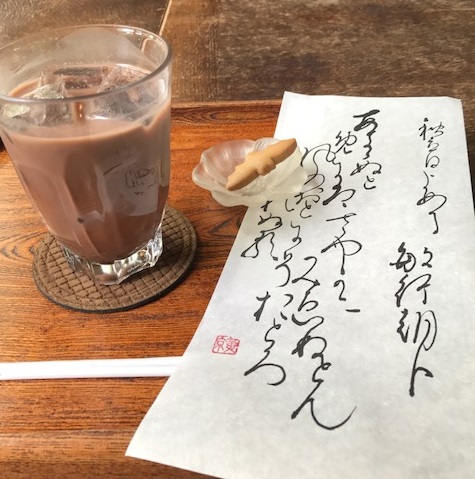 秋立日よめる 敏行朝臣
あきぬと
めにはさやかに
見えねとも
風のおとにそおとろ
かれぬる